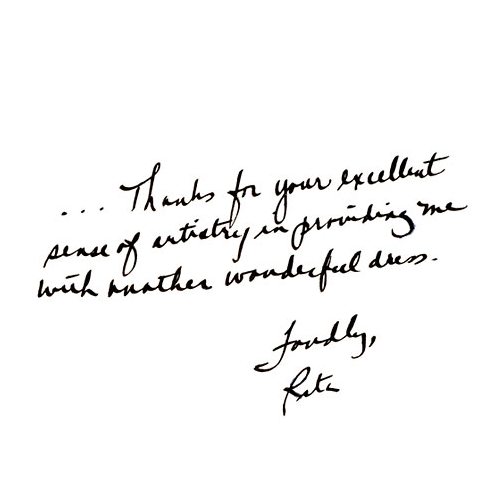 ... Thanks for your excellent
sense of artistry in providing me
with another wonderful dress.
Fondly,
Rita